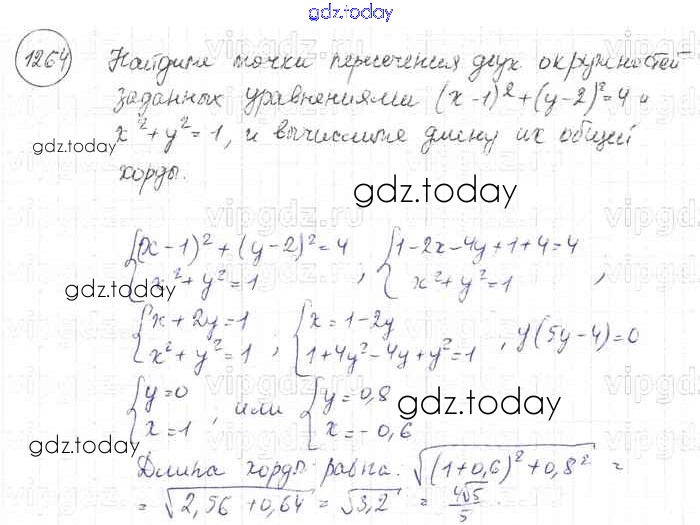 gdz.today
1264 Найдите точки пересечения двух окружностей
заданных уравнениями (x-1)²+(y-2)²=4 и
x²+y²=1, и вычислите длину их общей
хорды.
gdz.today
{(x-1)²+(y-2)²=4 ; {1-2x-4y+1+4=4
{x²+y²=1 {x²+y²=1 ,
gdz.today
{x+2y=1 ; {x=1-2y , y(5y-4)=0
{x²+y²=1 {1+4y²-4y+y²=1
{y=0 , или {y=0,8
{x=1 {x=-0,6
gdz.today
gdz.today
Длина хорды равна: √((1+0,6)²+0,8²) =
= √(2,56+0,64) = √3,2 = 4√5/5